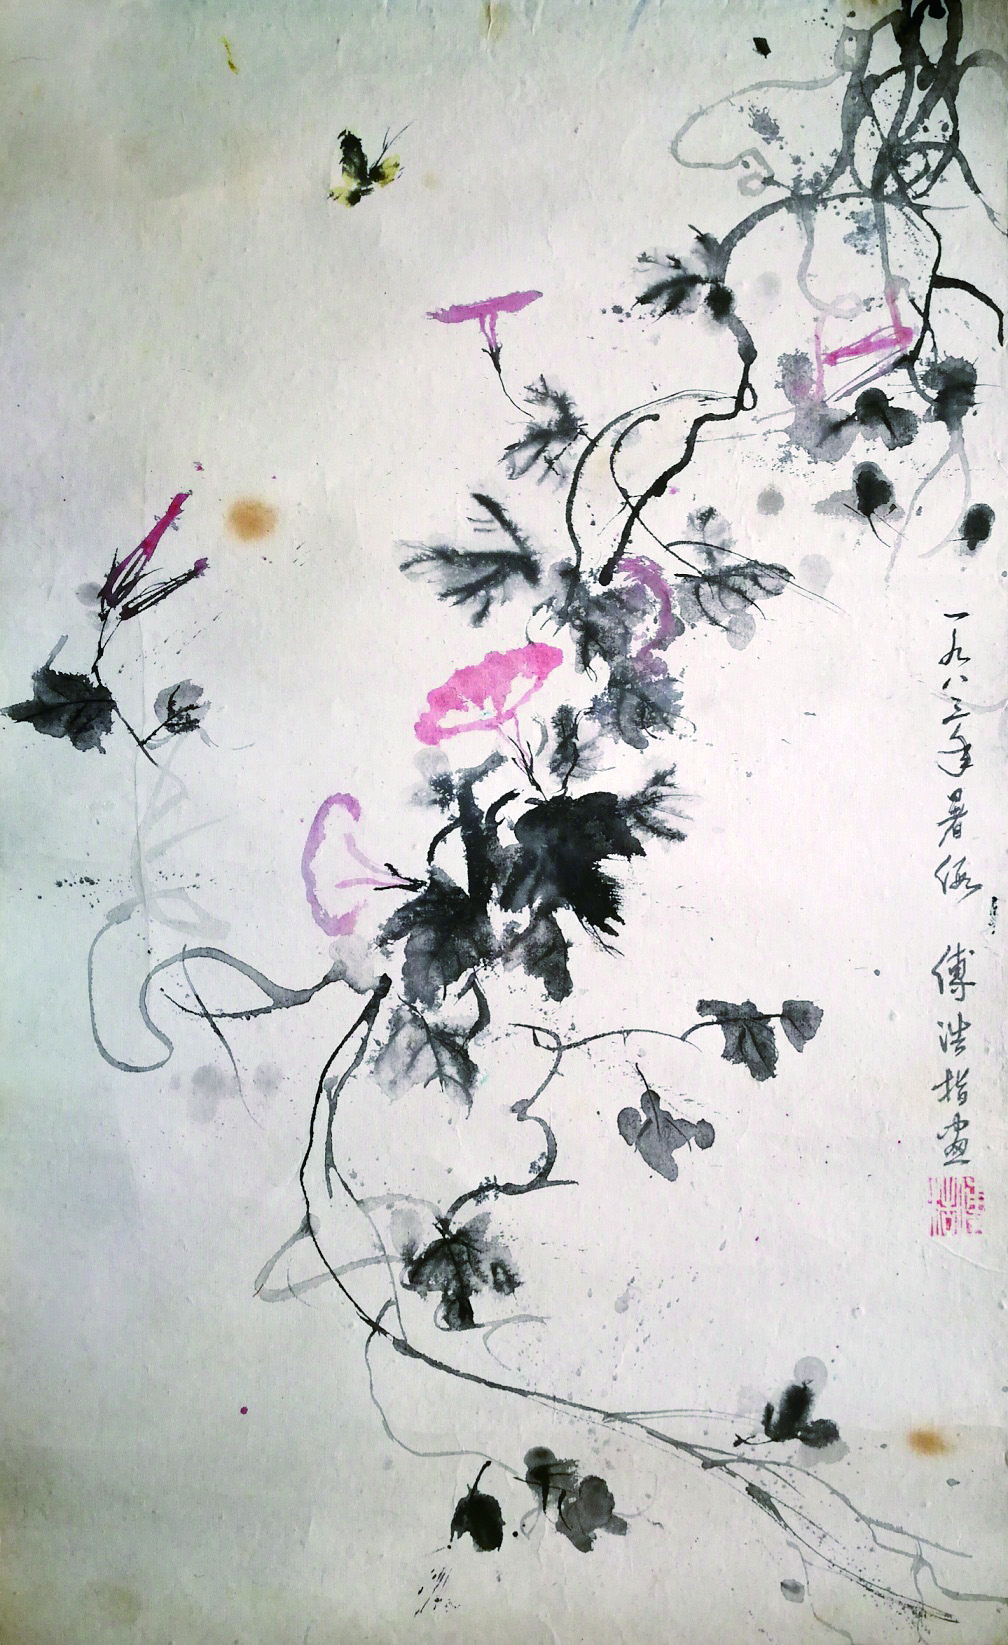 一九八三年暑假 傅浩指画